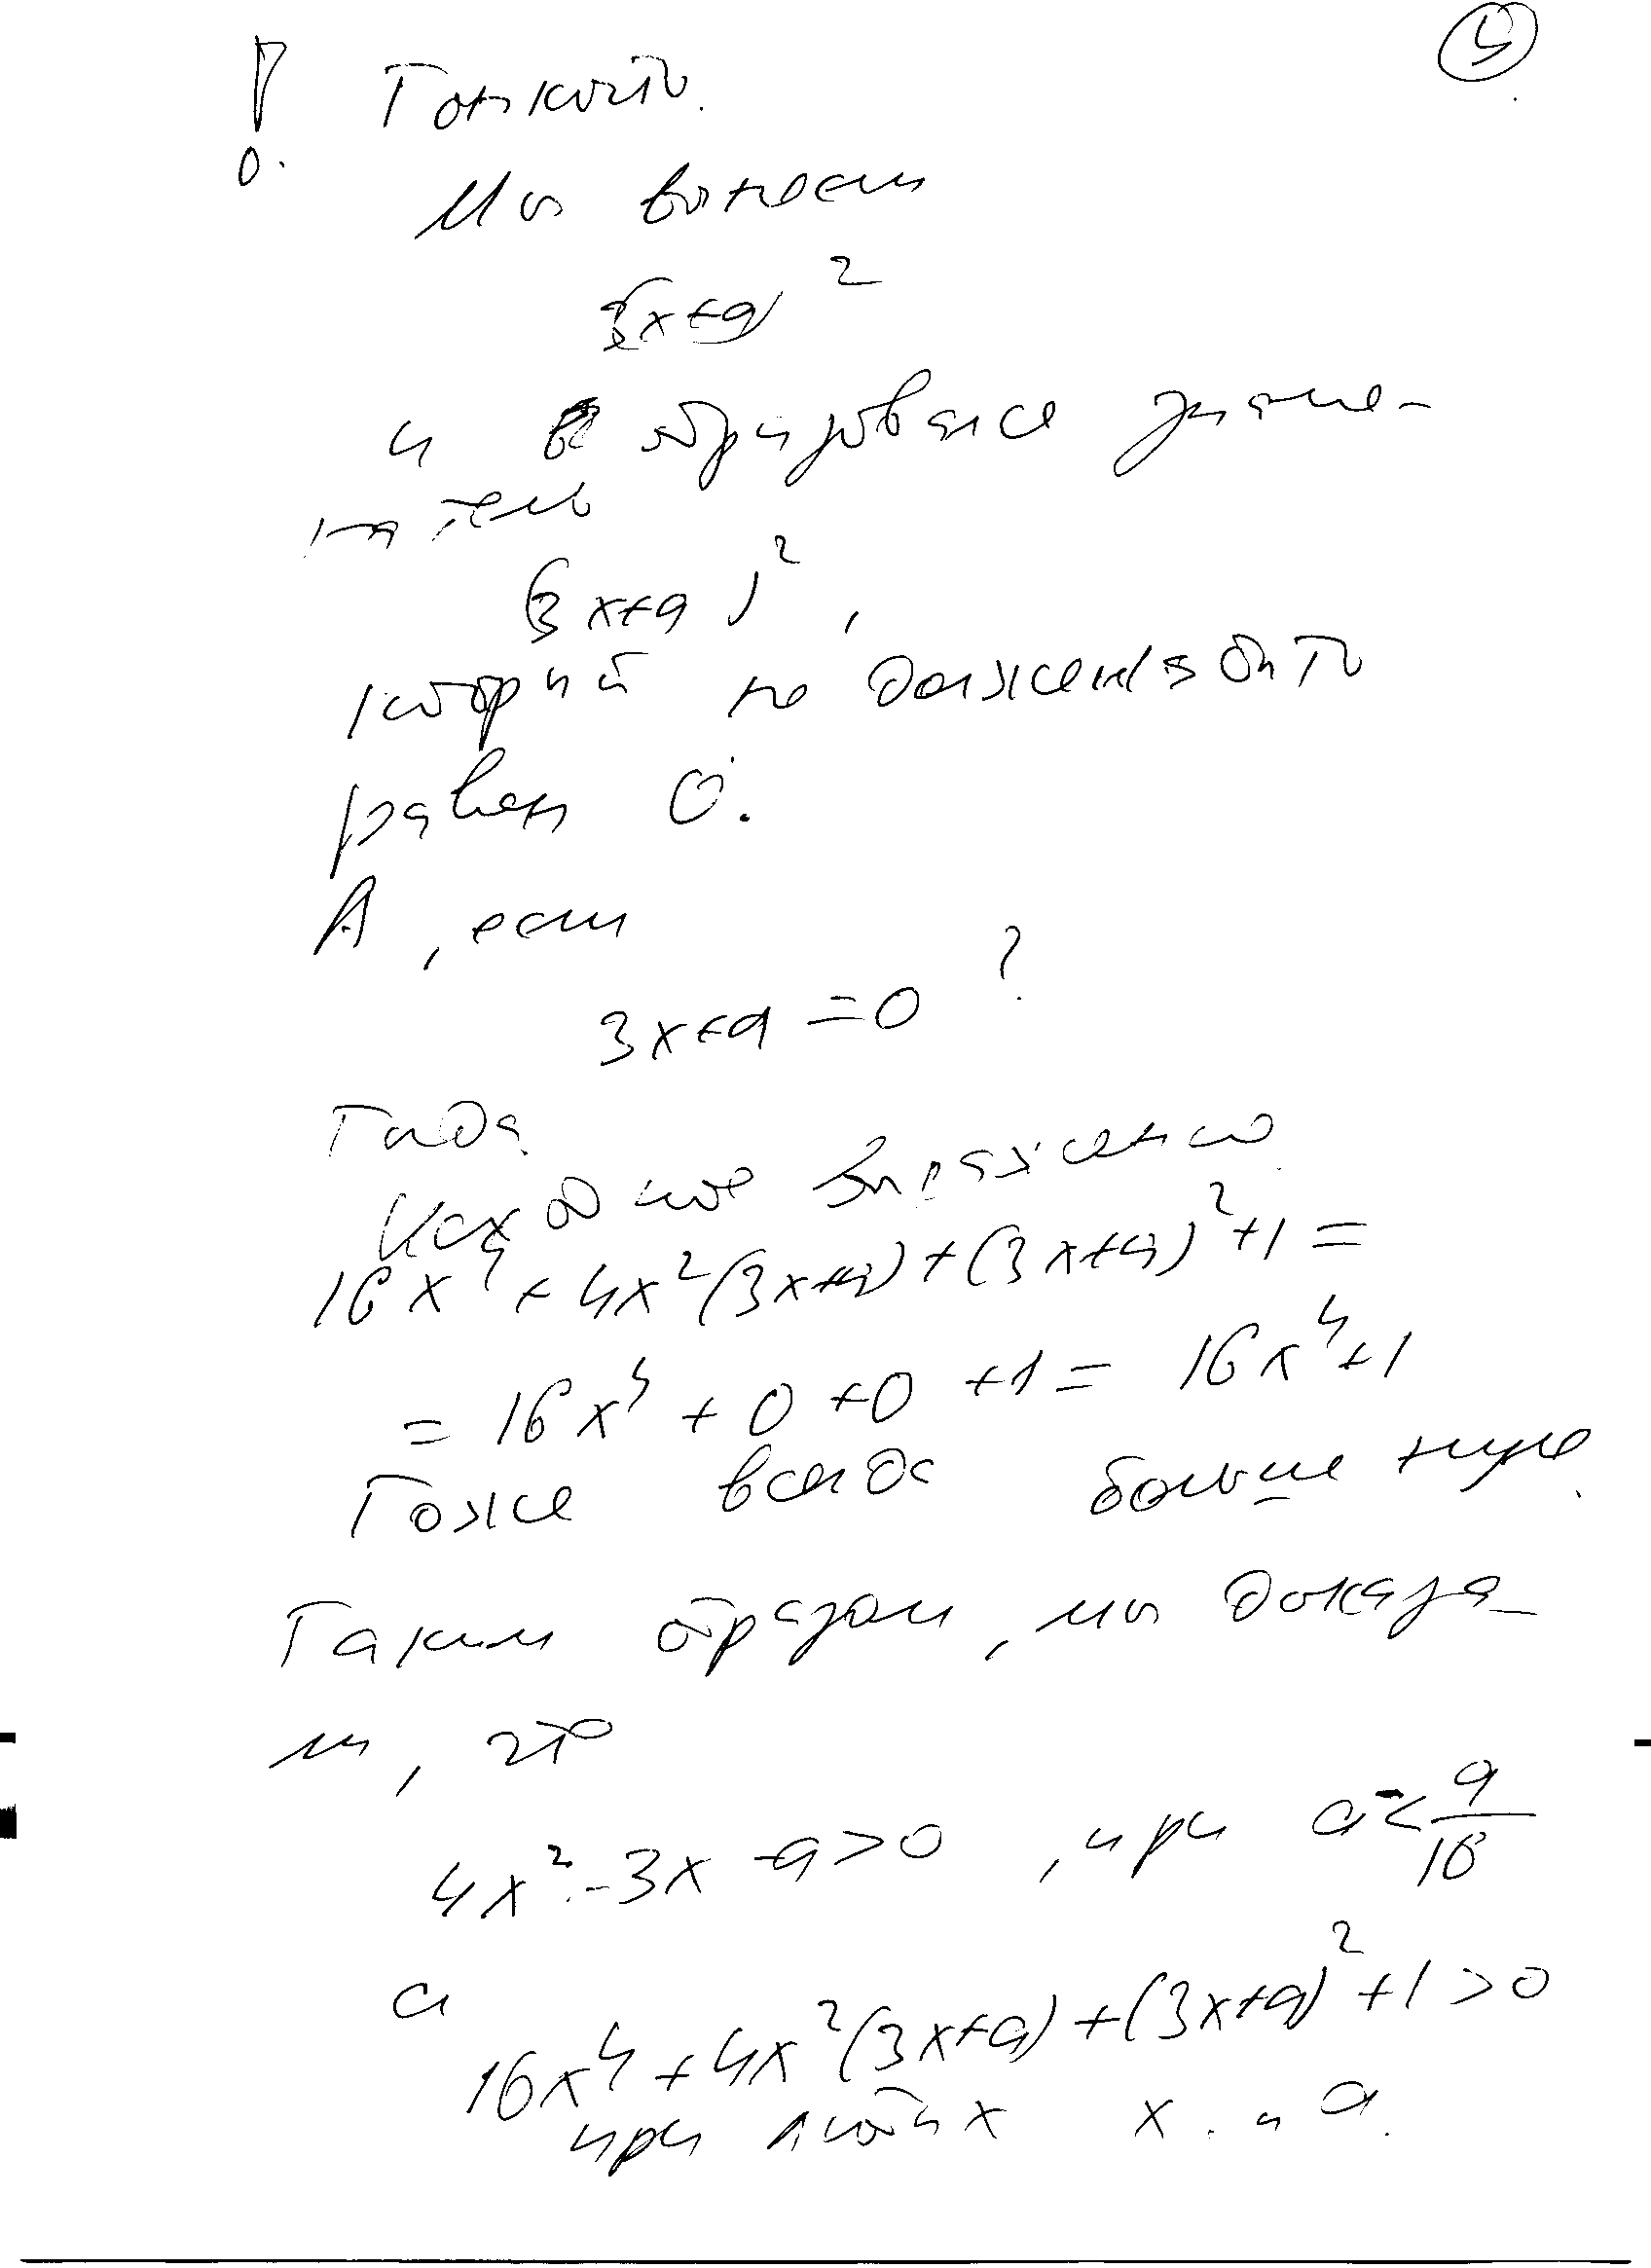 4
! Тонкость.
Мы вынесли
(3x+a)²
и образовался знаме-
натель
(3x+a)²,
который не должен быть
равен 0.
А, если
3x+a=0 ?
Тогда
Исходное выражение
16x⁴+4x²(3x+a)+(3x+a)²+1=
=16x⁴+0+0+1=16x⁴+1
Тоже всегда больше нуля.
Таким образом, мы доказа-
ли, что
4x²-3x-a>0, при a<-9/16
а
16x⁴+4x²(3x+a)+(3x+a)²+1>0
при любых x и a.